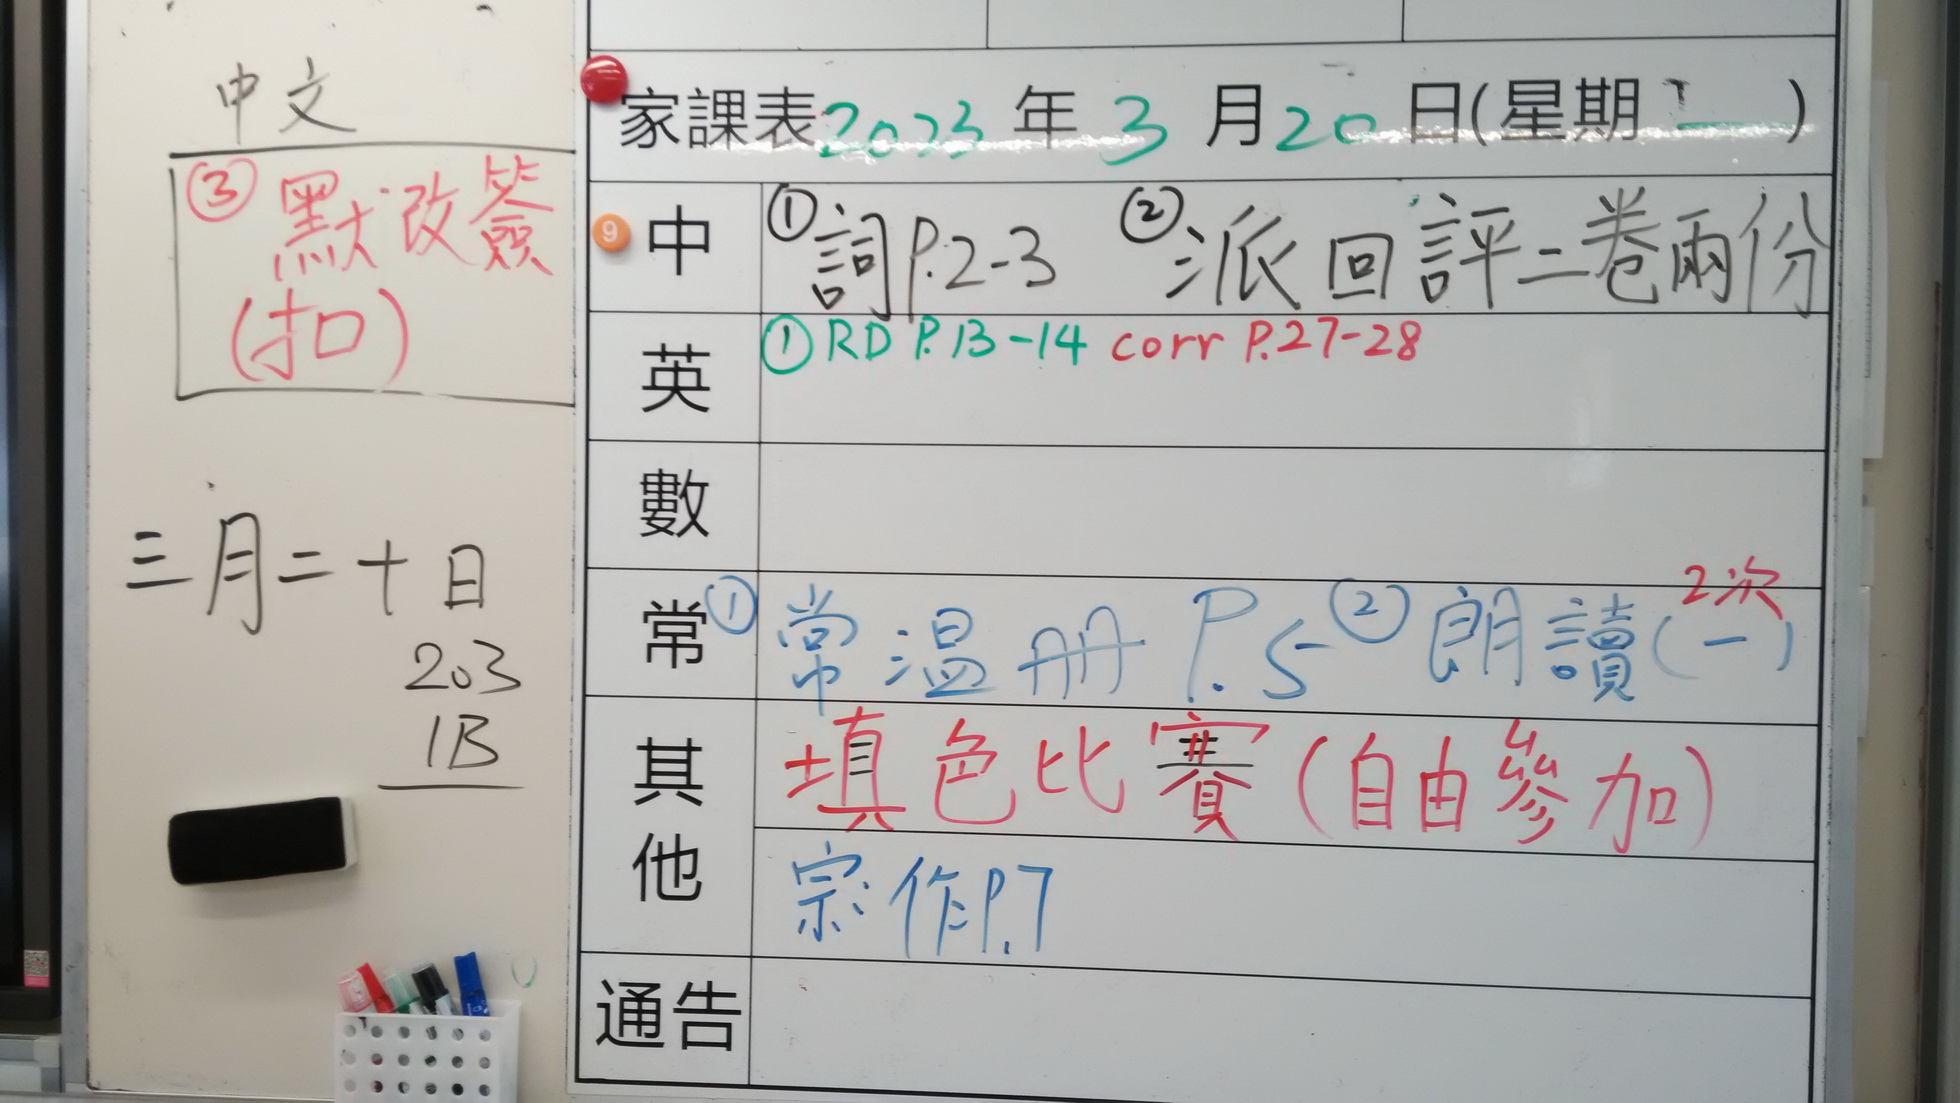 中文
③默改簽
(扣)
三月二十日
203
1B
家課表2023年3月20日(星期一)
9
中 ①詞P.2-3 ②派回評二卷兩份
英 ①RD P.13-14 corr P.27-28
數
2次
常 ①常温冊P.5 ②朗讀(一)
其他 填色比賽(自由參加)
宗:作P.7
通告